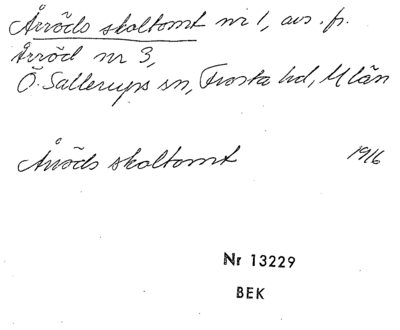 Årröds skoltomt nr 1, avs. fr.
Årröd nr 3,
Ö. Sallerups sn, Frosta hd, M län
Årröds skoltomt 1916
Nr 13229
BEK